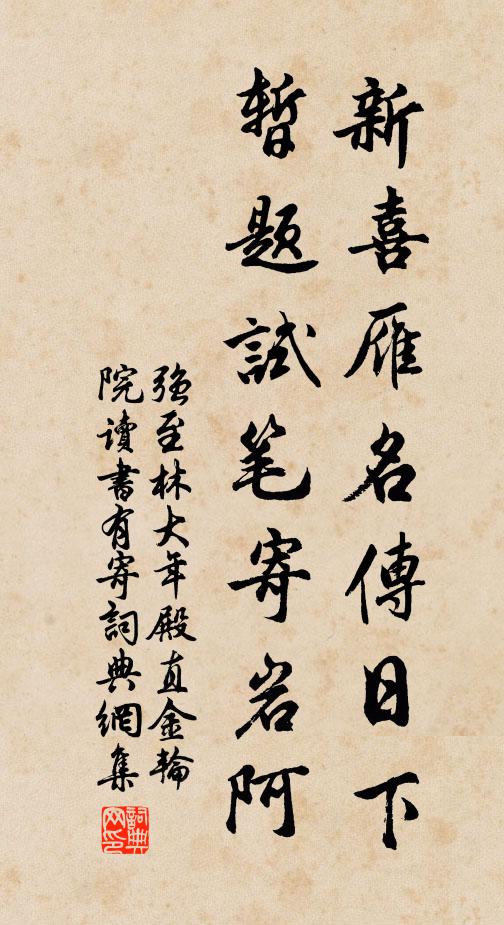 新喜雁名傳日下
暫題試笔寄岩阿
强至林大年殿直金輪
院讀書有寄詞典網集
詞典网印